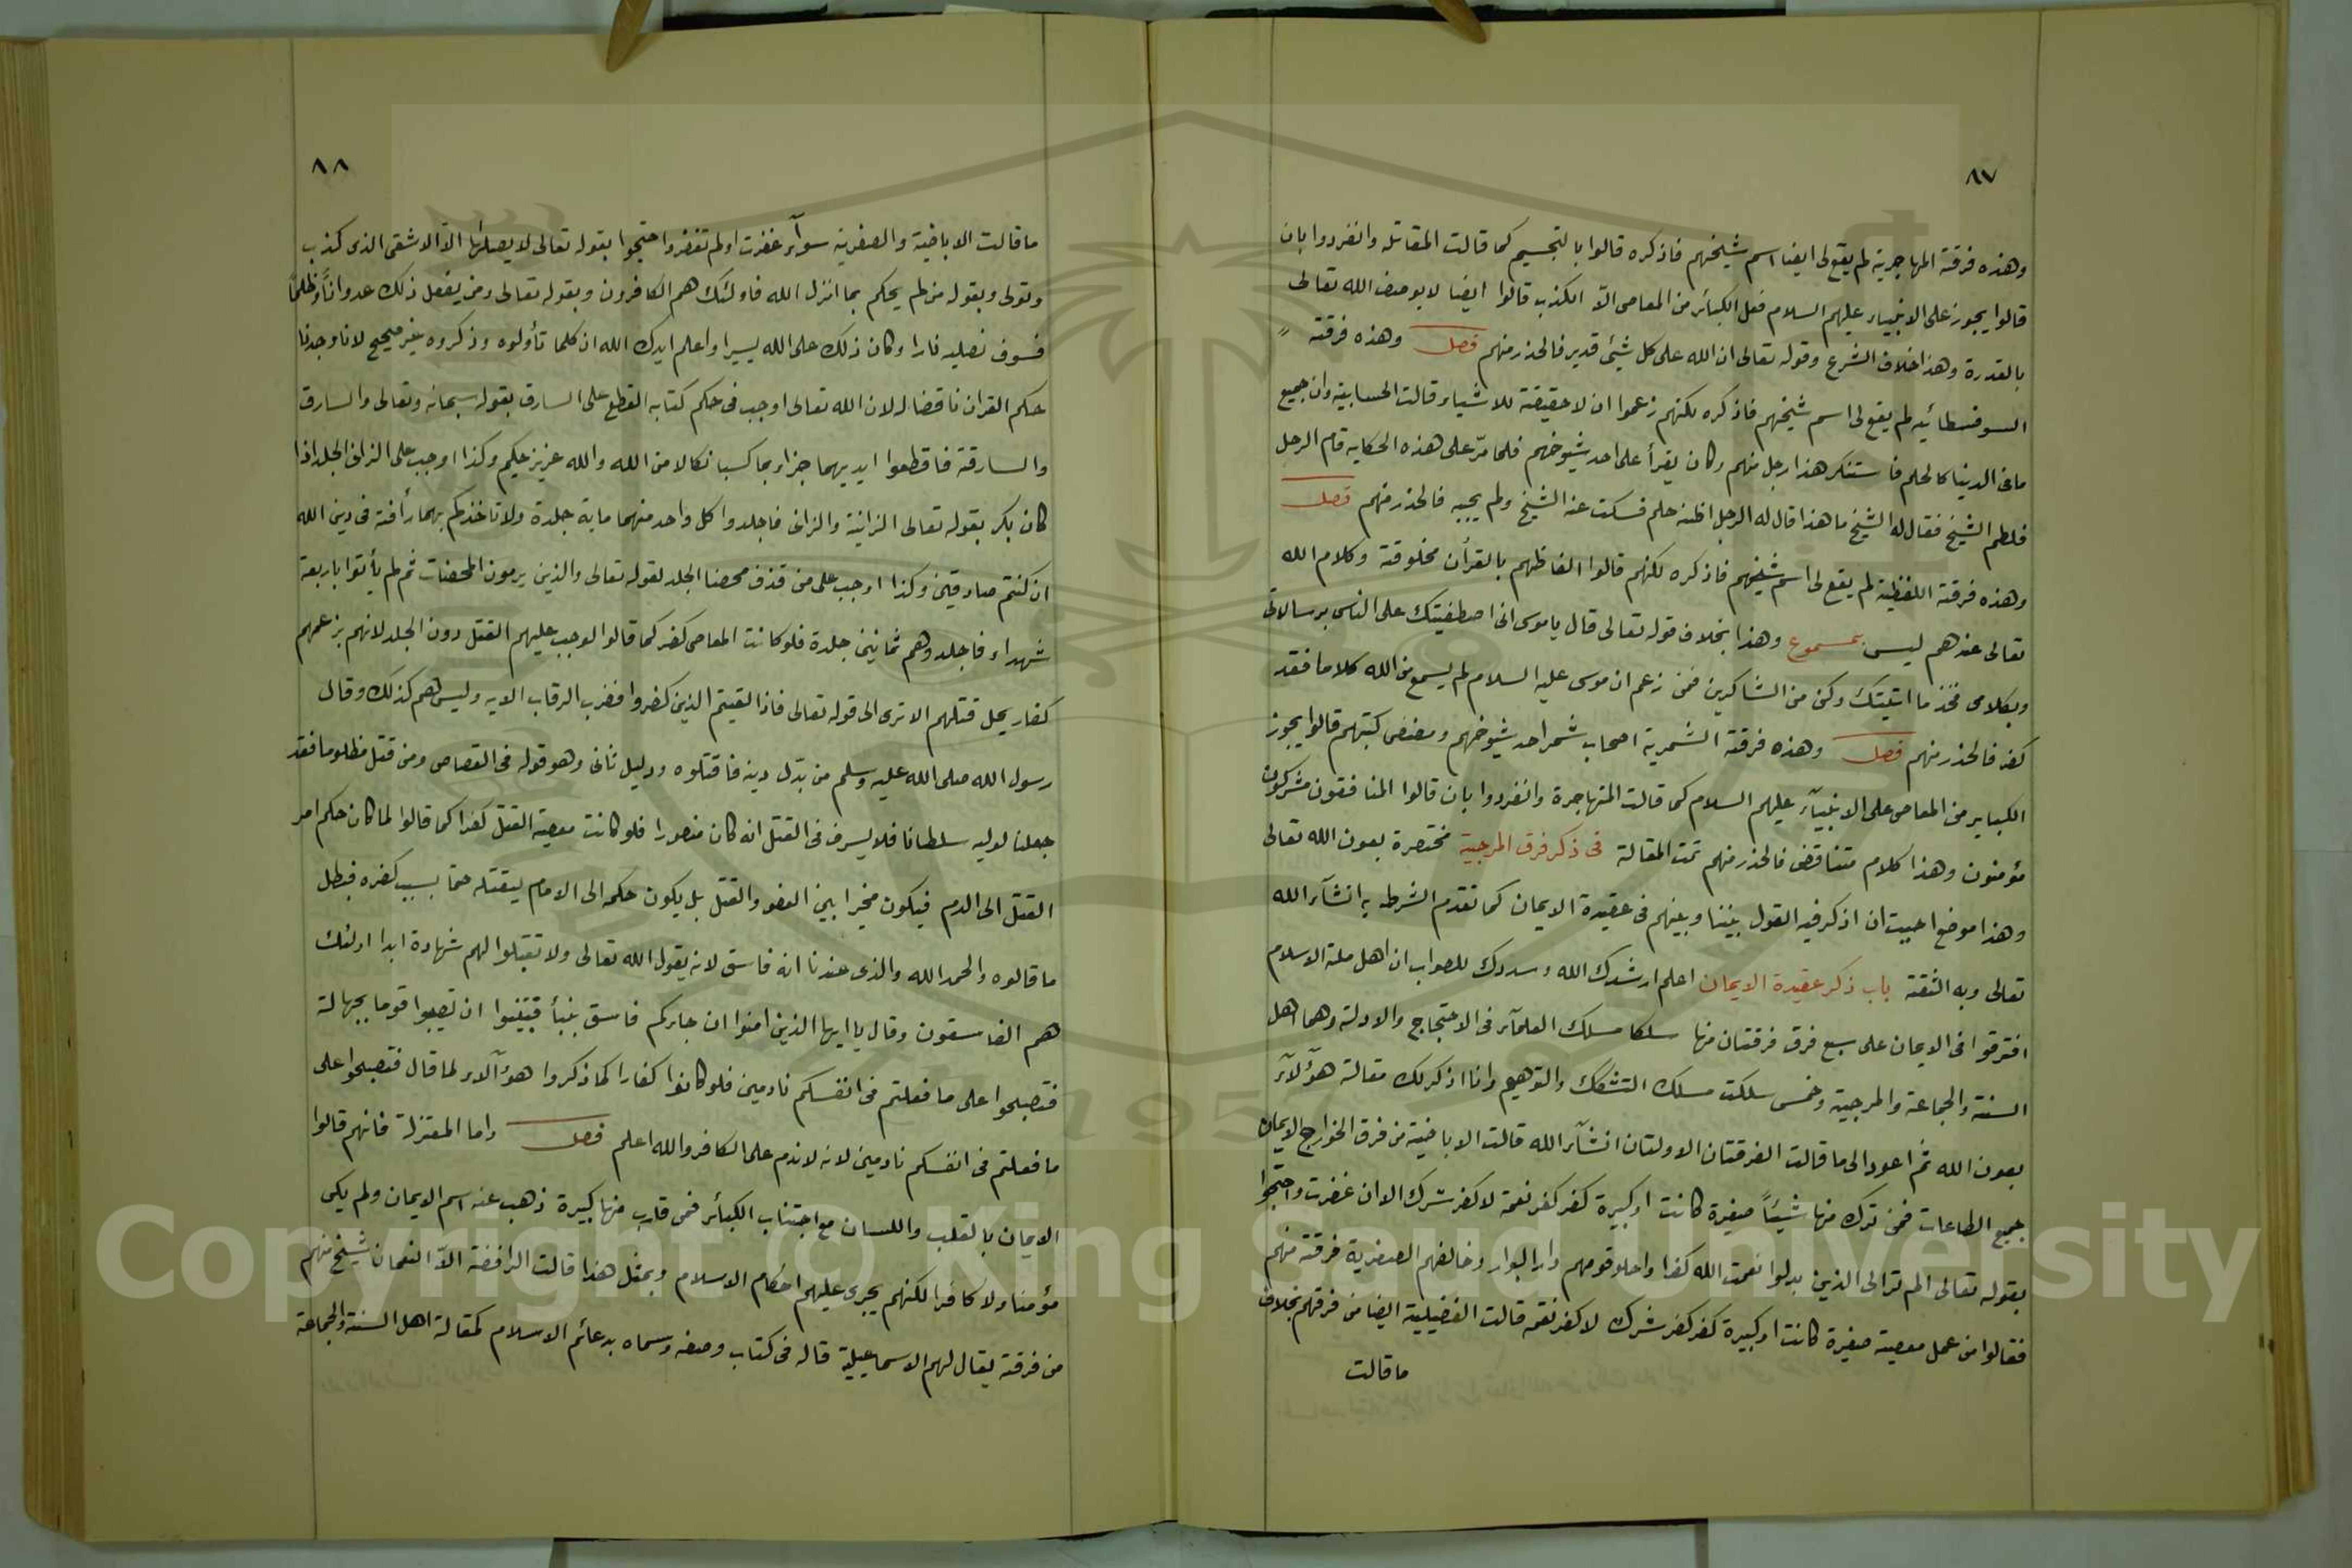 ٨٧
وهذه فرقة المهاجرية لم يقع لى ايضا اسم شيخهم فاذكره قالوا بالتجسيم كما قالت المقاتله وانفردوا بان
قالوا يجوز على الانبياء عليهم السلام فعل الكبائر من المعاصى الّا الكذب قالوا ايضا لا يوصف الله تعالى
بالقدرة وهذا خلاف الشرع وقوله تعالى ان الله على كل شيئ قدير فالحذر منهم فصل وهذه فرقة
السوفسطائيه لم يقع لى اسم شيخهم فاذكره لكنهم زعموا ان لا حقيقة للاشياء وقالت الحسابية وان جميع
مافى الدينا كالحلم فاستنكر هذا رجل منهم وكان يقرأ على احد شيوخهم فلما مرّ على هذه الحكايه قام الرجل
فلطم الشيخ فقال له الشيخ ما هذا قال له الرجل اظنه حلم فسكت عنه الشيخ ولم يجبه فالحذر منهم فصل
وهذه فرقة اللفظية لم يقع لى اسم شيخهم فاذكره لكنهم قالوا الفاظهم بالقرأن مخلوقة وكلام الله
تعالى عندهم ليس بمسموع وهذا بخلاف قوله تعالى قال ياموسى انى اصطفيتك على الناس برسالاتى
وبكلامى فخذ ما اتيتك وكن من الشاكرين فمن زعم ان موسى عليه السلام لم يسمع من الله كلاما فقد
كفر فالحذر منهم فصل وهذه فرقة الشمرية اصحاب شمر احد شيوخهم ومصنف كتبهم قالوا يجوز
الكباير من المعاصى على الانبيآء عليهم السلام كما قالت المتهاجرة وانفردوا بان قالوا المنافقون مشركون
مؤمنون وهذا كلام متناقض فالحذر منهم تمت المقالة فى ذكر فرق المرجية مختصرة بعون الله تعالى
وهذا موضع احببت ان اذكر فيه القول بيننا وبينهم فى عقيدة الايمان كما تقدم الشرط به انشآء الله
تعالى وبه الثقة باب ذكر عقيدة الايمان اعلم ارشدك الله وسددك للصواب ان اهل ملة الاسلام
افترقوا فى الايمان على سبع فرق فرقتان منها سلكا مسلك العلمآء فى الاحتجاج والادلة وهما اهل
السنة والجماعة والمرجية وخمس سلكت مسلك التشكك والتوهيم وانا اذكر لك مقالة هؤلآء
بعون الله ثم اعود الى ما قالت الفرقتان الاولتان انشآء الله قالت الاباضية من فرق الخوارج الايمان
جميع الطاعات فمن ترك منها شيئاً صغيرة كانت او كبيرة كفر كفر نعمة لا كفر شرك الا ان غفرت واحتجوا
بقوله تعالى الم ترالى الذين بدلوا نعمت الله كفرا واحلوا قومهم دار البوار وخالفهم الصفرية فرقة منهم
فقالوا من عمل معصية صغيرة كانت او كبيرة كفر كفر شرك لا كفر نعمه قالت الفضيلية ايضا من فرقهم بخلاف
ما قالت
٨٨
ما قالت الاباضية والصفرية سوآء غفرت اولم تغفر واحتجوا بقوله تعالى لا يصلاها الّا الاشقى الذى كذب
وتولى وبقوله من لم يحكم بما انزل الله فاولئك هم الكافرون وبقوله تعالى ومن يفعل ذلك عدواناً وظلماً
فسوف نصليه نارا وكان ذلك على الله يسيرا واعلم ايدك الله ان كلما تأولوه وذكروه غير صحيح لانا وجدنا
حكم القران ناقضا له لان الله تعالى اوجب فى حكم كتابه القطع على السارق بقوله سبحانه وتعالى والسارق
والسارقة فاقطعوا ايديهما جزاء بما كسبا نكالا من الله والله عزيز حكيم وكذا اوجب على الزانى الجلد اذا
كان بكر بقوله تعالى الزانية والزانى فاجلدوا كل واحد منهما ماية جلدة ولا تاخذكم بهما رأفة فى دين الله
ان كنتم صادقين وكذا اوجب على من قذف محصنا الجلد لقوله تعالى والذين يرمون المحصنات ثم لم يأتوا باربعة
شهداء فاجلدوهم ثمانين جلدة فلو كانت المعاصى كفر كما قالوا لوجب عليهم القتل دون الجلد لانهم بزعمهم
كفار يحل قتلهم الا ترى الى قوله تعالى فاذا لقيتم الذين كفروا فضرب الرقاب الايه وليس هم كذلك وقال
رسول الله صلى الله عليه وسلم من بدّل دينه فاقتلوه ودليل ثانى وهو قوله فى القصاص ومن قتل مظلوما فقد
جعلنا لوليه سلطانا فلا يسرف فى القتل انه كان منصورا فلو كانت معصية القتل كفرا كما قالوا لما كان حكم امر
القتل الى الدم فيكون مخيرا بين العفو والقتل بل يكون حكمه الى الامام ليقتله حتما بسبب كفره فبطل
ما قالوه والحمد الله والذى عندنا انه فاسق لانه يقول الله تعالى ولا تقبلوا لهم شهادة ابدا اولئك
هم الفاسقون وقال يا ايها الذين امنوا ان جاءكم فاسق بنبأ فتبينوا ان تصيبوا قوما بجهالة
فتصبحوا على ما فعلتم فى انفسكم نادمين فلو كانوا كفارا كما ذكروا هؤلآء لما قال فتصبحوا على
ما فعلتم فى انفسكم نادمين لانه لا ندم على الكافر والله اعلم فصل واما المعتزلة فانهم قالوا
الايمان بالقلب واللسان مع اجتناب الكبائر فمن قارب منها كبيرة ذهب عنه اسم الايمان ولم يكن
مؤمنا ولا كافرا لكنهم يجرى عليهم احكام الاسلام وبمثل هذا قالت الرافضة الّا النعمان شيخ منهم
من فرقة يقال لهم الاسماعيلية قاله فى كتاب وصفه وسماه بدعائم الاسلام كمقالة اهل السنة والجماعة
Copyright © King Saud University
1957